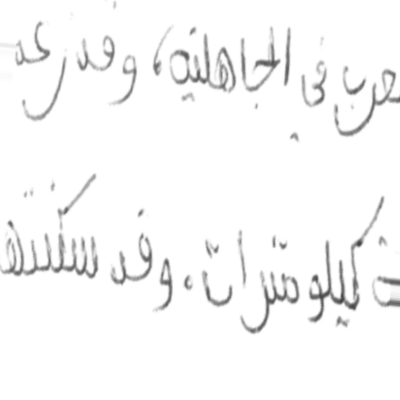 عرب في الجاهلية، وقد زعم
كيلومترات. وقد سكنتها